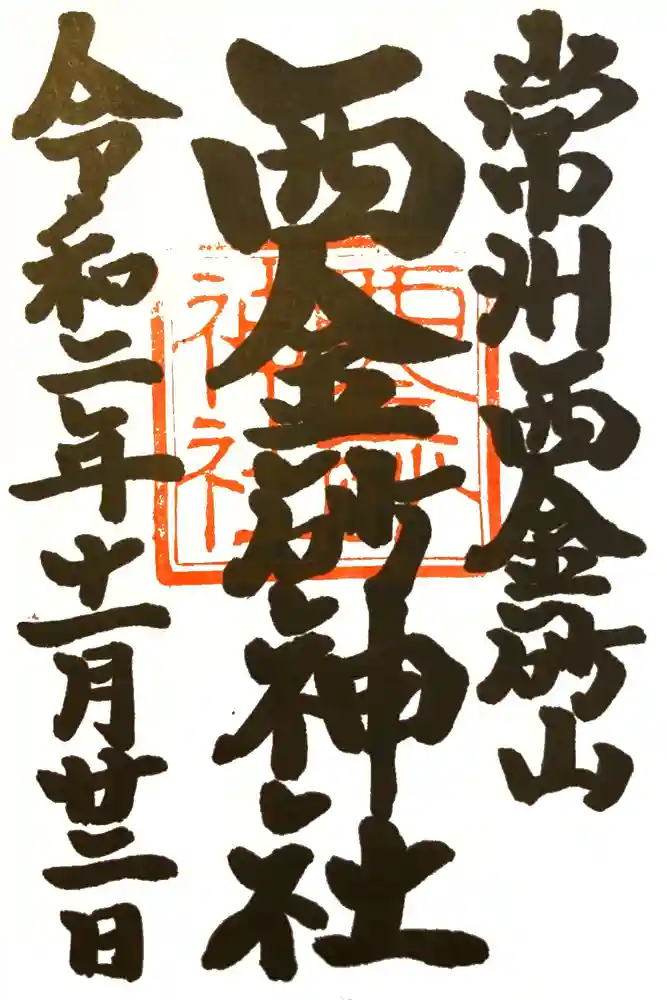 常州西金砂山
西金砂神社
令和二年十一月廿二日
西金砂
神社